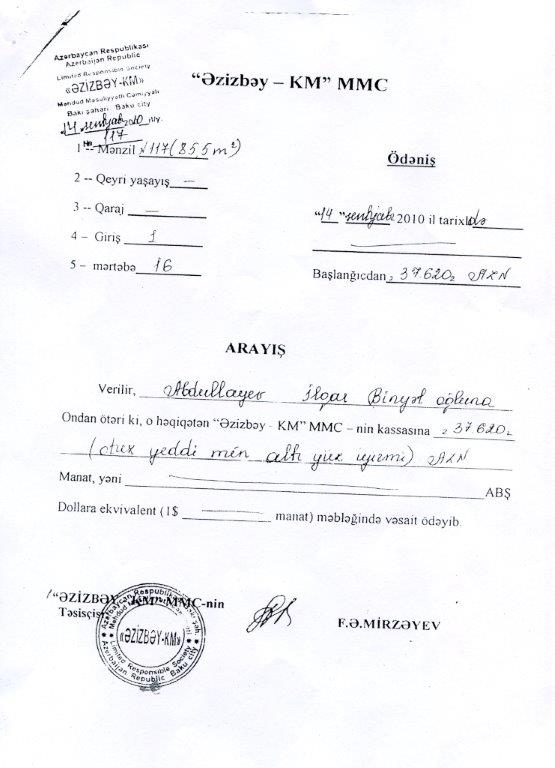 Azərbaycan Respublikası
Azerbaijan Republic
Limited Responsible Society
«ƏZİZBƏY-KM»
Məhdud Məsuliyyətli Cəmiyyəti
Bakı şəhəri Baku city
14 sentjabr 2010
№ 117
"Əzizbəy – KM" MMC
1 -- Mənzil №117 (85,5 m²)
2 -- Qeyri yaşayış —
3 -- Qaraj —
4 – Giriş 1
5 – mərtəbə 16
Ödəniş
"14" sentjabr 2010 il tarixdə
Başlanğıcdan = 37.620= AZN
ARAYIŞ
Verilir, Abdullayev İlqar Binyət oğluna
Ondan ötəri ki, o həqiqətən "Əzizbəy - KM" MMC – nin kassasına = 37.620=
(otuz yeddi min altı yüz iyirmi) AZN
Manat, yəni ABŞ
Dollara ekvivalent (1$ manat) məbləğində vəsait ödəyib.
"ƏZİZBƏY – KM" MMC-nin
Təsisçisi
F.Ə.MİRZƏYEV
Azərbaycan Respublikası Bakı şəh.
Məhdud Məsuliyyətli
«ƏZİZBƏY-KM»
Limited Responsible Society
Azerbaijan Republic Baku city